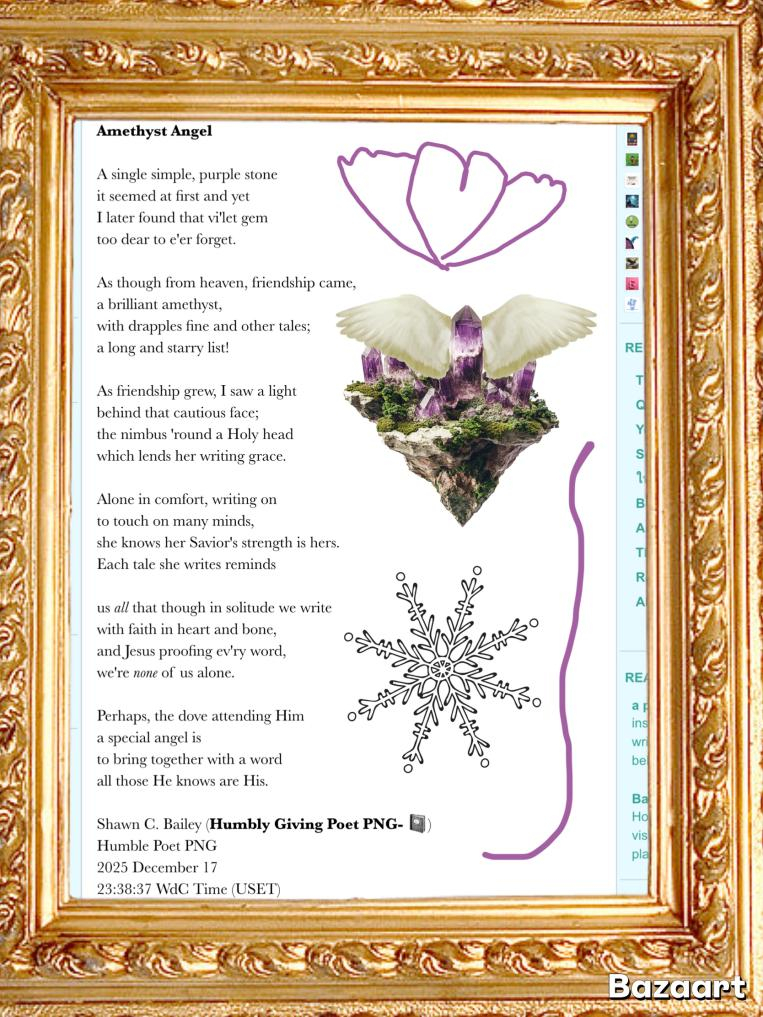 Amethyst Angel
A single simple, purple stone
it seemed at first and yet
I later found that vi'let gem
too dear to e'er forget.
As though from heaven, friendship came,
a brilliant amethyst,
with drapples fine and other tales;
a long and starry list!
As friendship grew, I saw a light
behind that cautious face;
the nimbus 'round a Holy head
which lends her writing grace.
Alone in comfort, writing on
to touch on many minds,
she knows her Savior's strength is hers.
Each tale she writes reminds
us all that though in solitude we write
with faith in heart and bone,
and Jesus proofing ev'ry word,
we're none of us alone.
Perhaps, the dove attending Him
a special angel is
to bring together with a word
all those He knows are His.
Shawn C. Bailey (Humbly Giving Poet PNG- 📓)
Humble Poet PNG
2025 December 17
23:38:37 WdC Time (USET)
RE
T
Q
Y
S
B
A
R
A
REA
a p
ins
wri
be
Ba
Ho
vis
pla
Bazaart